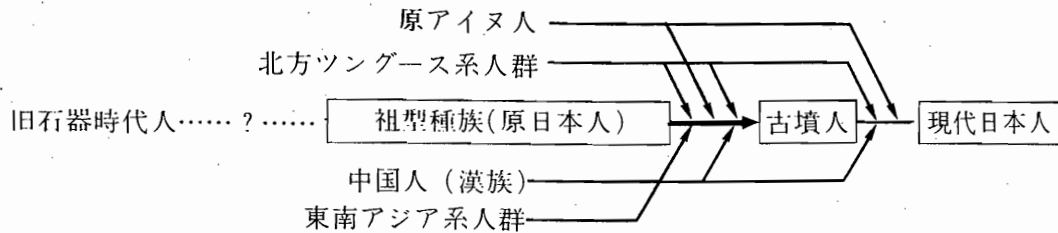 原アイヌ人
北方ツングース系人群
旧石器時代人……?…… 祖型種族(原日本人) 古墳人 現代日本人
中国人(漢族)
東南アジア系人群